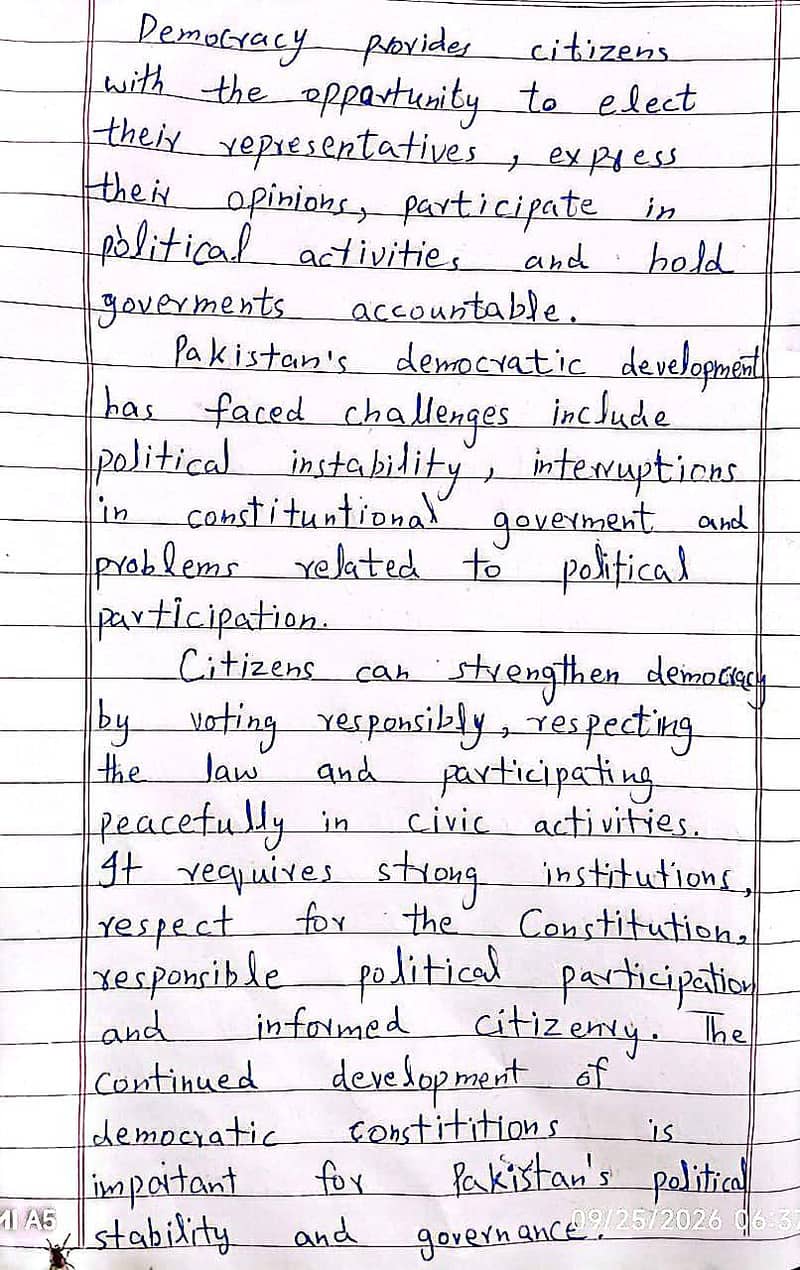 Democracy provides citizens
with the opportunity to elect
their representatives, express
their opinions, participate in
political activities and hold
goverments accountable.
Pakistan's democratic development
has faced challenges include
political instability, interruptions
in constituntional goverment and
problems related to political
participation.
Citizens can strengthen democracy
by voting responsibly, respecting
the law and participating
peacefully in civic activities.
It requires strong institutions,
respect for the Constitution,
responsible political participation
and informed citizenry. The
continued development of
democratic constititions is
impoitant for Pakistan's political
stability and governance.
AI A5
09/25/2026 06:37